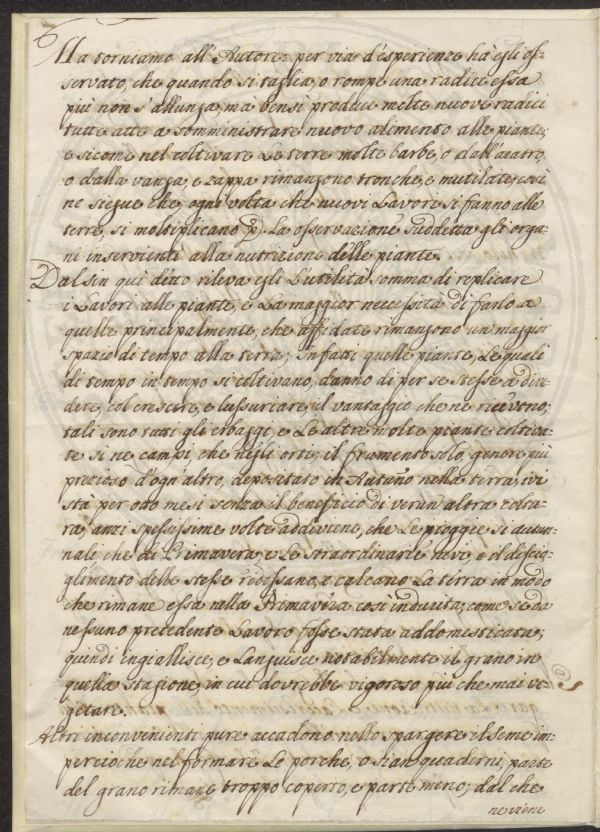 6
Ma torniamo all'Autore: per via d'esperienze hà egli os-
servato, che quando si taglia, o rompe una radice essa
più non s'allunga, ma bensì produce molte nuove radici
tutte atte a somministrare nuovo alimento alle piante;
e sicome nel coltivare le terre molte barbe, o dall'aratro,
o dalla vanga, e zappa rimangono tronche, e mutilate, così
ne siegue che ogni volta che nuovi Lavori si fanno alle
terre, si moltiplicano p. La osservazione suddetta gli orga-
ni inservienti alla nutrizione delle piante.
Dal sin quì detto rileva egli L'utilità somma di replicare
i Lavori alle piante, e La maggior necessità di farlo a
quelle principalmente, che affidate rimangono un maggior
spazio di tempo alla terra; Infatti quelle piante, Le quali
di tempo in tempo si coltivano, danno di per se stesse a dive-
dere, col crescere, e lussuriare, il vantaggio che ne ricevono;
tali sono tutti gli erbaggi, e Le altre molte piante coltiva-
te sì ne campi, che negli orti; il frumento solo, genere più
prezioso d'ogn'altro, depositato in Autuño nella terra, ivi
stà per otto mesi senza il beneficio di verun'altra coltu-
ra, anzi spessissime volte addiviene, che Le pioggie sì autun-
nali, che di Primavera, e Le straordinarie nevi, e il discio-
glimento delle stesse calcano La terra in modo
che rimane essa nella Primavera così indurita, come se da
nessuno precedente Lavoro fosse stata addomesticata;
quindi ingiallisce, e Languisce notabilmente il grano in
quella stagione, in cui dovrebbe vigoroso più che mai ve-
getare.
Altri inconvenienti pure accadono nello spargere il seme im-
percioche nel formare Le porche, o sian quaderni, parte
del grano rimane troppo coperto, e parte meno; dal che
ne viene